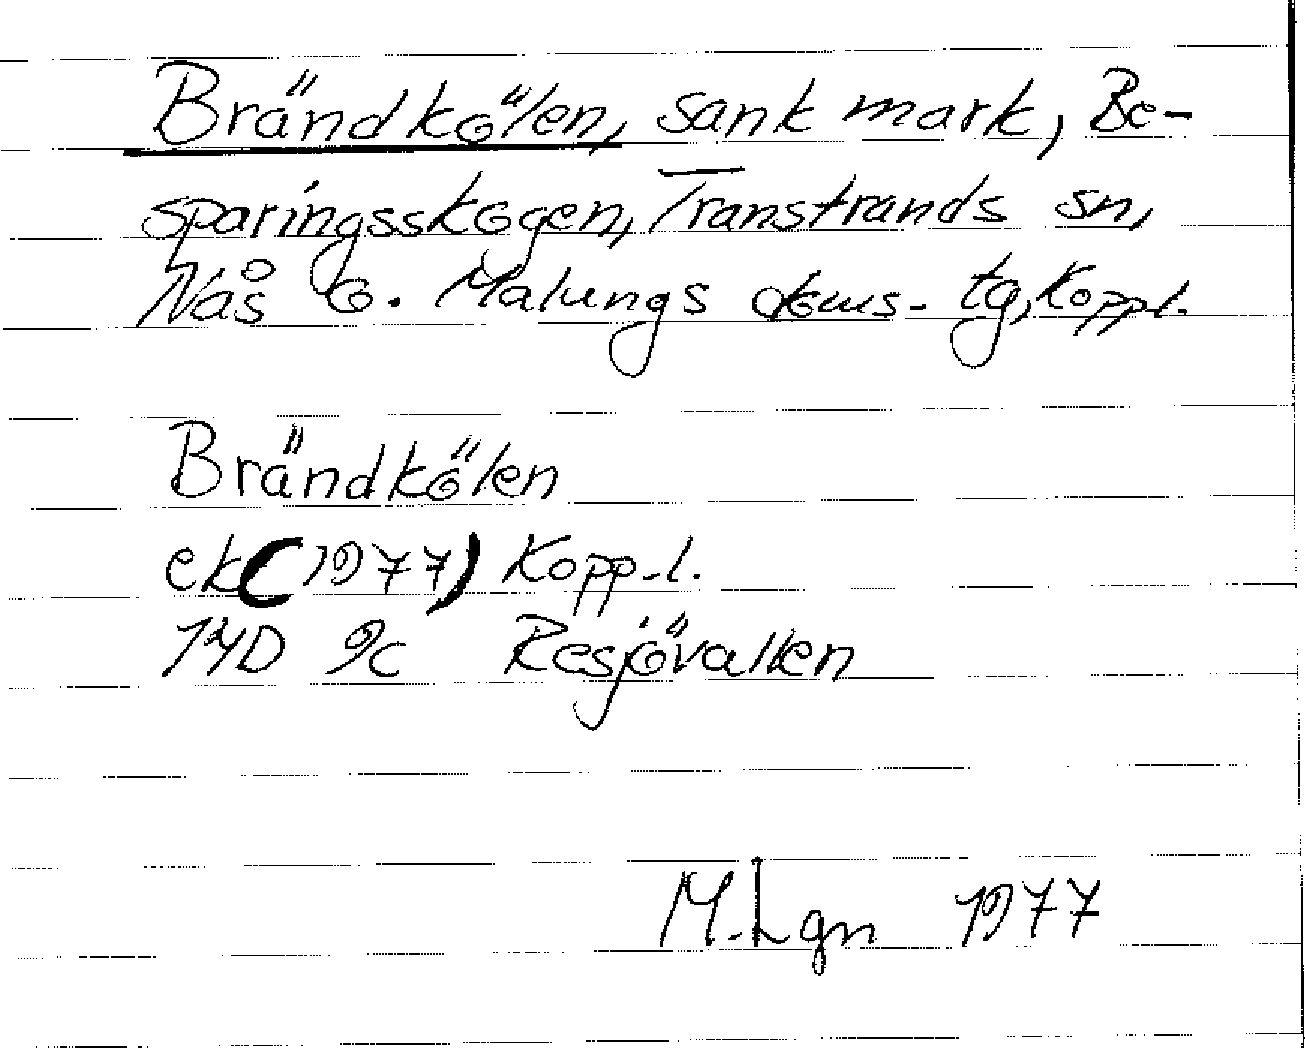 Brändkölen, sank mark, Be-
sparingsskogen, Transtrands sn,
Nås o. Malungs doms. tg, Koppl.
Brändkölen
ek (1977) Kopp. l.
14D 9c Resjövallen
M. Lgn 1977